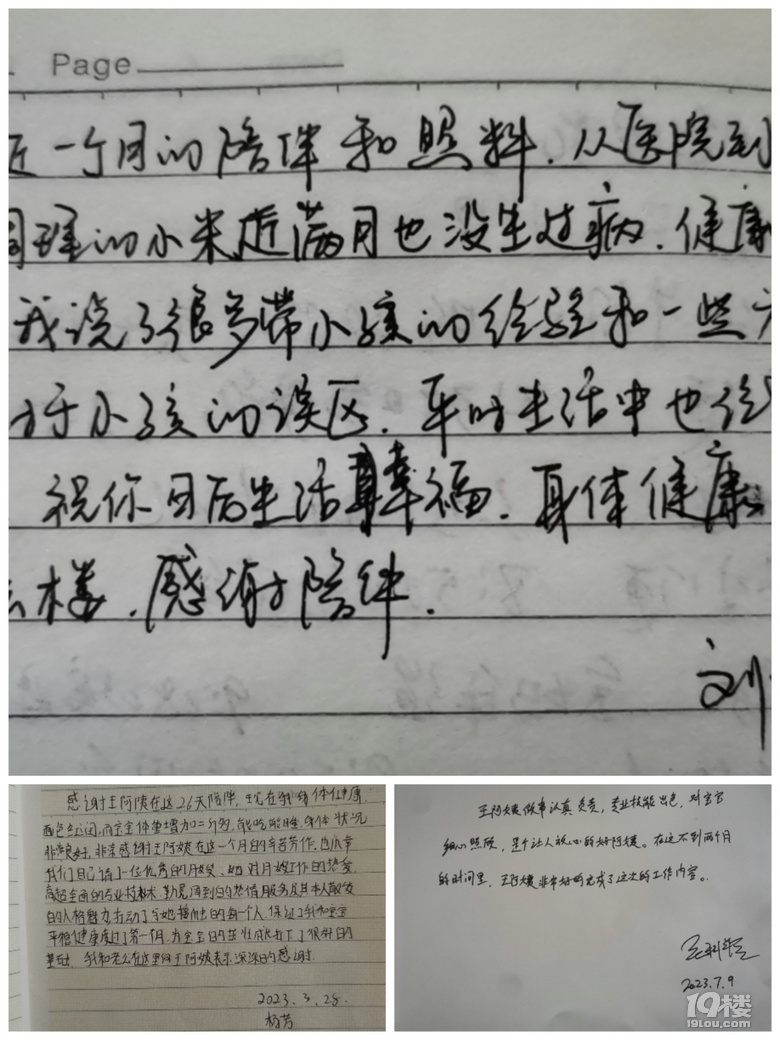 Page
近一个月的陪伴和照料.从医院到
调理的小米近满月也没生过病.健康
我说了很多带小孩的经验和一些
对于小孩的误区.平时生活中也给
祝你日后生活幸福.身体健康
楼.感谢陪伴.
刘
感谢王阿姨在这26天陪伴,现在我身体健康,
面色红润,而宝宝体重增加二斤多,能吃能睡,身体状况
非常良好,非常感谢王阿姨在这一个月的辛苦劳作,也庆幸
我们自己请了一位优秀的月嫂,她对月嫂工作的热爱,
高超全面的专业技术,勤恳周到的热情服务及其本人散发
的人格魅力打动了与她接触的每一个人,保证了我和宝宝
平稳健康度过了第一个月,为宝宝的茁壮成长打下了很好的
基础,我和老公在这里向王阿姨表示深深的感谢.
2023.3.28.
杨芳
王阿姨做事认真负责,专业技能出色,对宝宝
细心照顾,是个让人放心的好阿姨。在这不到两个月
的时间里,王阿姨非常好的完成了这次的工作内容。
2023.7.9
19楼
19lou.com